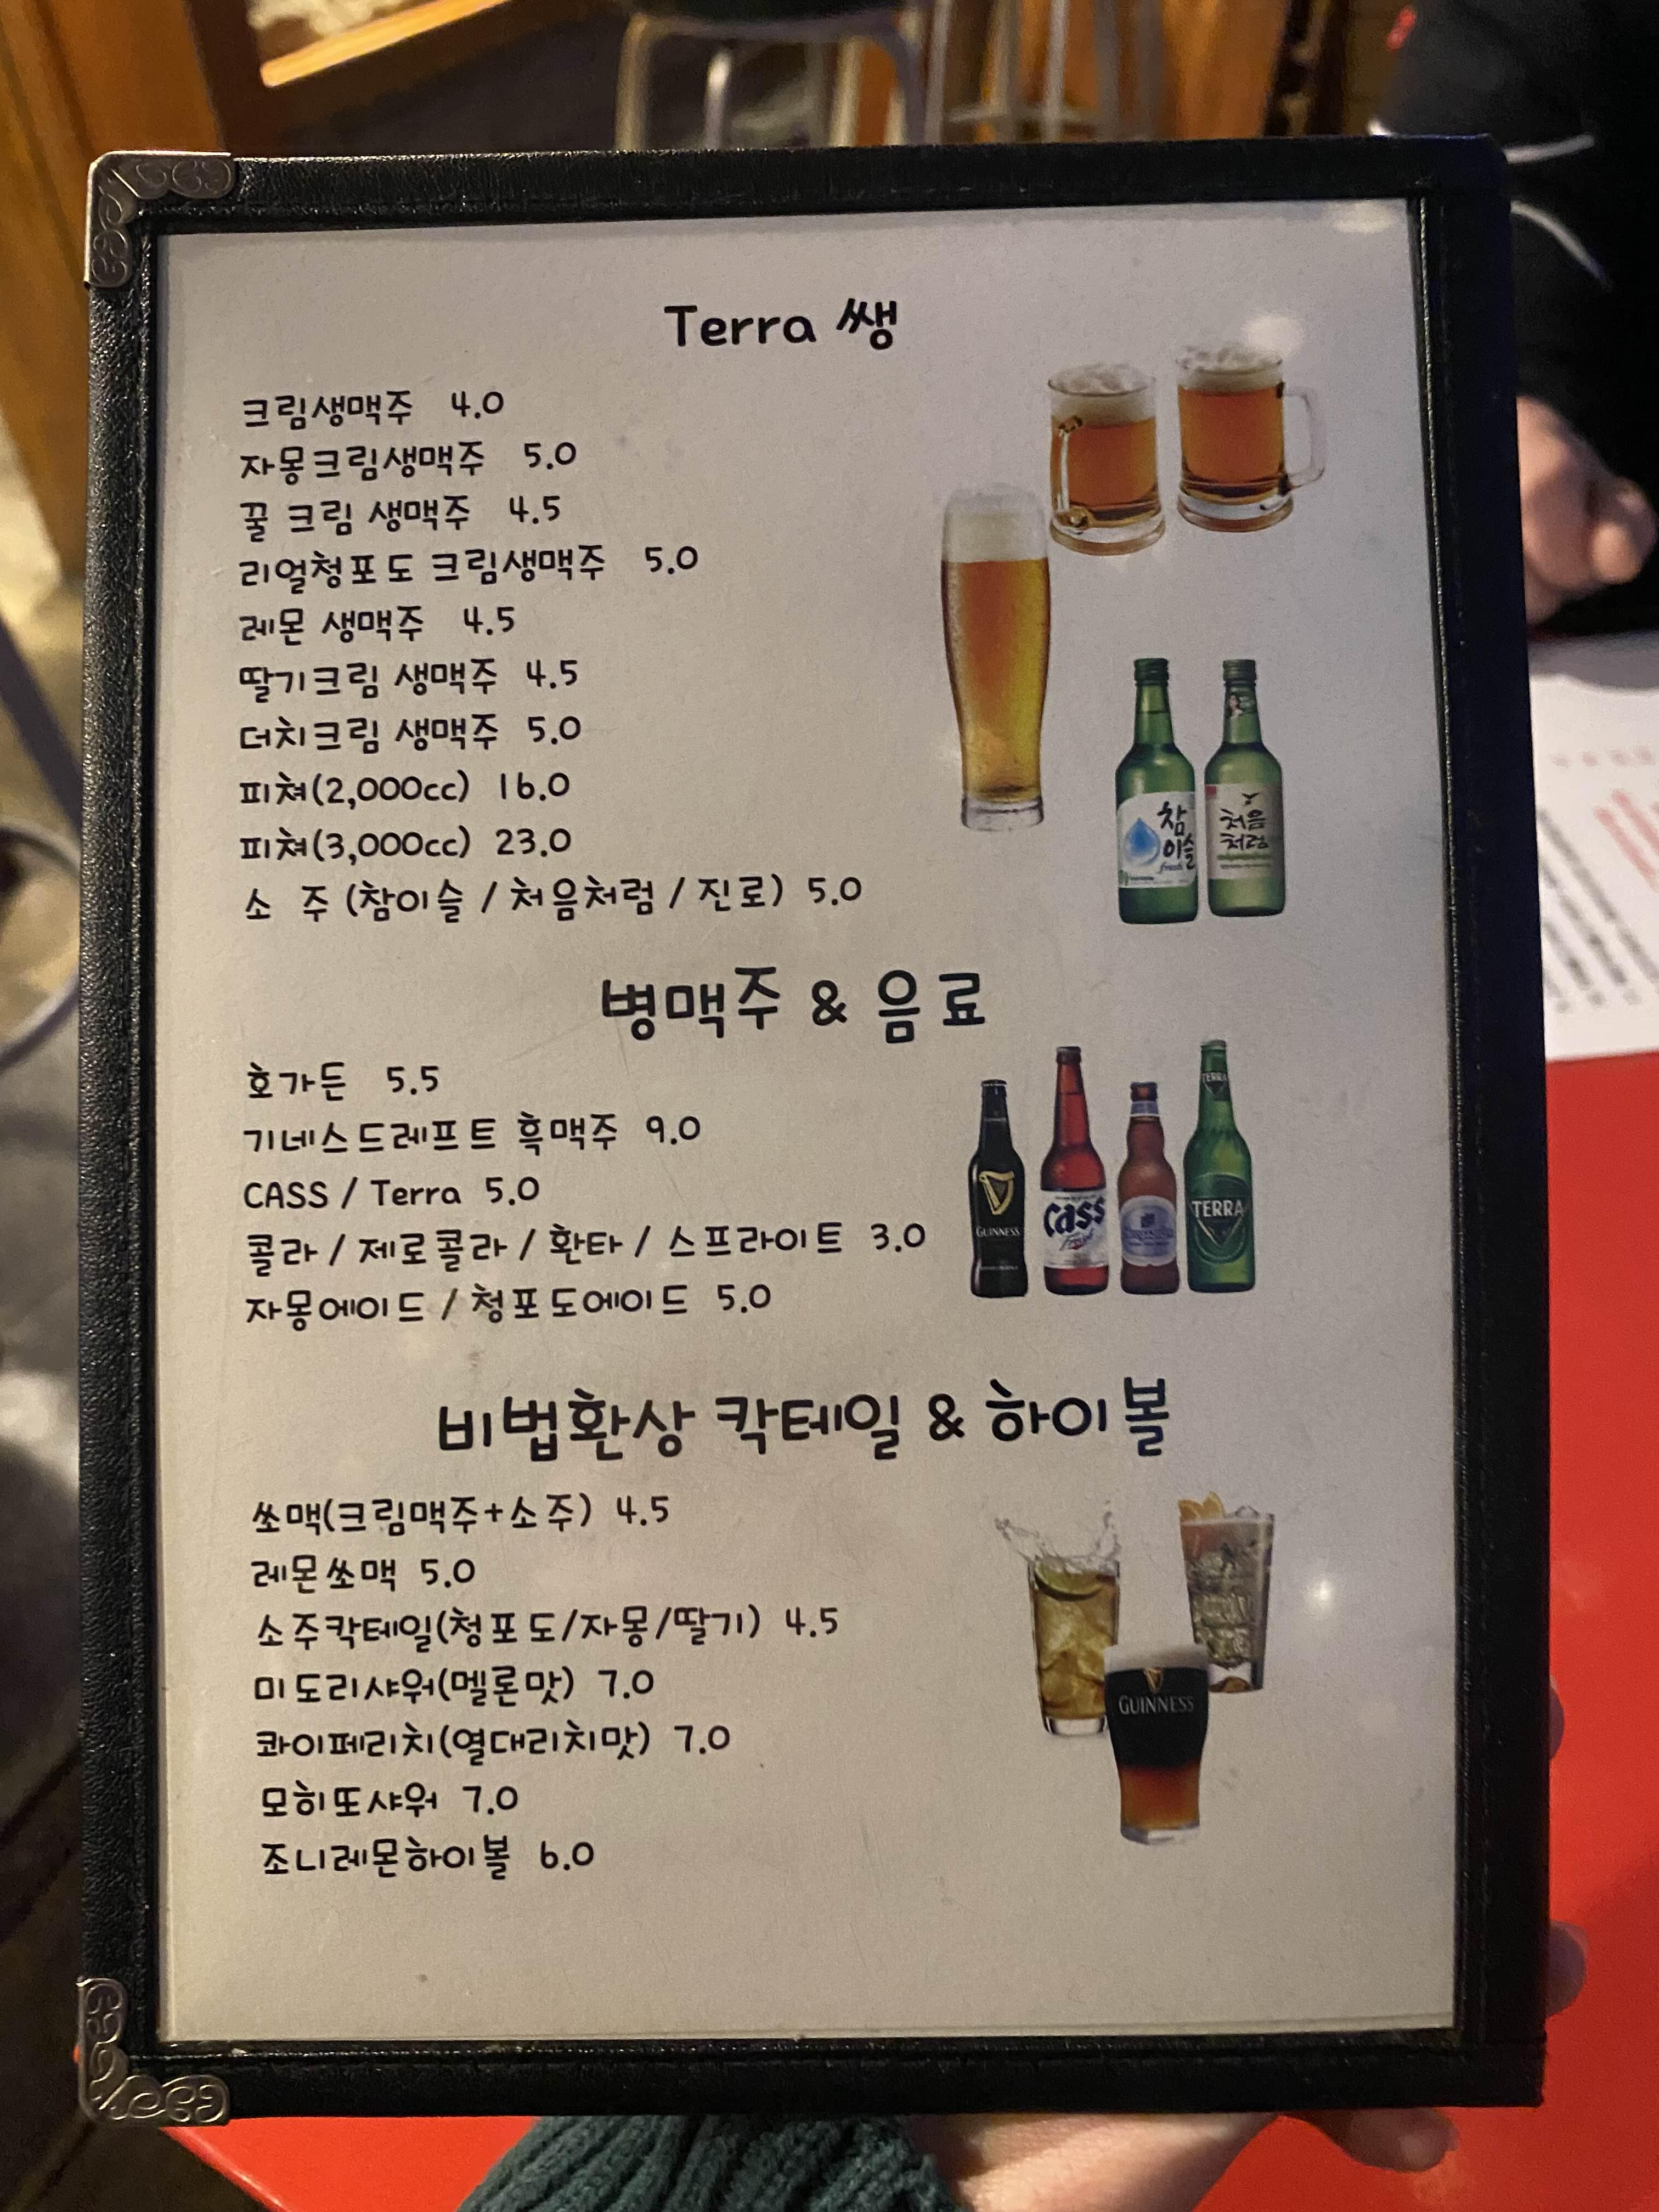 Terra 쌩
크림생맥주 4.0
자몽크림생맥주 5.0
꿀 크림 생맥주 4.5
리얼청포도 크림생맥주 5.0
레몬 생맥주 4.5
딸기크림 생맥주 4.5
더치크림 생맥주 5.0
피쳐(2,000cc) 16.0
피쳐(3,000cc) 23.0
소 주 (참이슬 / 처음처럼 / 진로) 5.0
참이슬
fresh
처음처럼
병맥주 & 음료
호가든 5.5
기네스드레프트 흑맥주 9.0
CASS / Terra 5.0
콜라 / 제로콜라 / 환타 / 스프라이트 3.0
자몽에이드 / 청포도에이드 5.0
GUINNESS
Cass
Fresh
TERRA
TERRA
비법환상 칵테일 & 하이볼
쏘맥(크림맥주+소주) 4.5
레몬쏘맥 5.0
소주칵테일(청포도/자몽/딸기) 4.5
미도리샤워(멜론맛) 7.0
콰이페리치(열대리치맛) 7.0
모히또샤워 7.0
조니레몬하이볼 6.0
GUINNESS